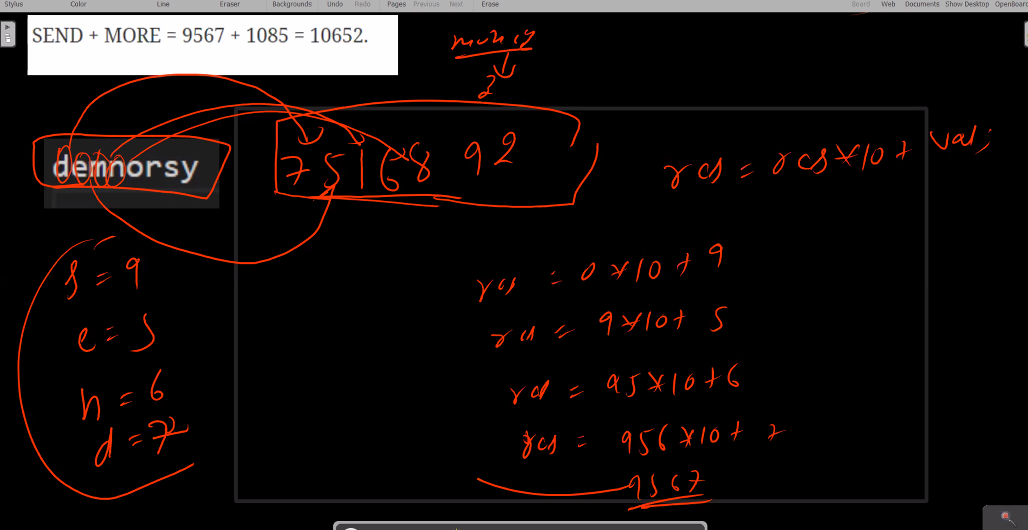 Stylus Color Line Eraser Backgrounds Undo Redo Pages Previous Next Erase Board Web Documents Show Desktop OpenBoard
SEND + MORE = 9567 + 1085 = 10652.
money
2
demnorsy
7 5 1 6 8 9 2
res = res * 10 + val;
s = 9
e = 5
n = 6
d = 7
res = 0 * 10 + 9
res = 9 * 10 + 5
res = 95 * 10 + 6
res = 956 * 10 + 7
9567